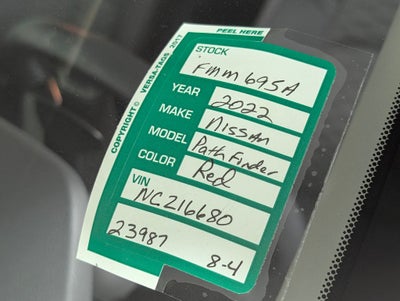 PEEL HERE
COPYRIGHT © VERSA-TAGS 2017
STOCK
FMM695A
YEAR 2022
MAKE Nissan
MODEL Pathfinder
COLOR Red
VIN
NC216680
23987 8-4